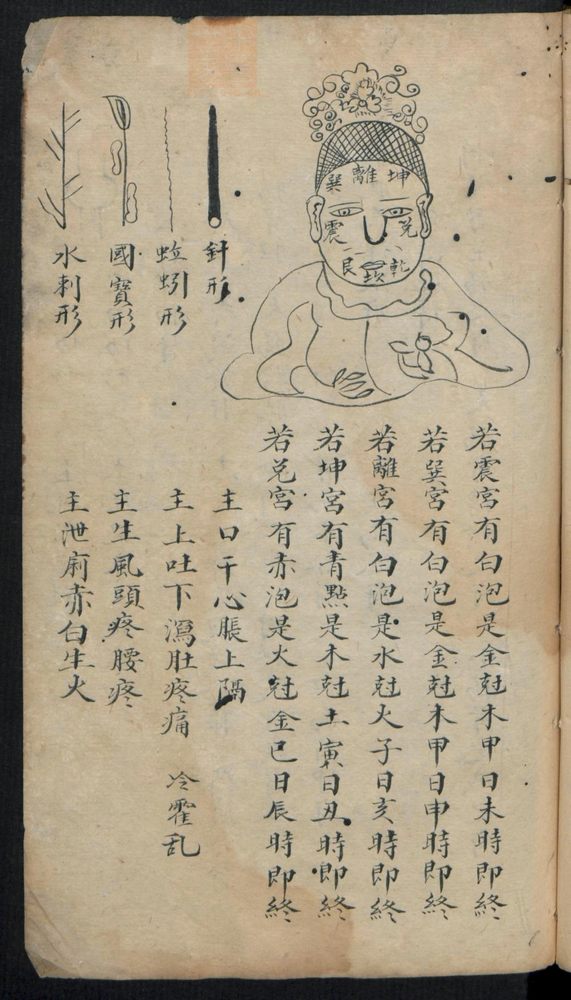 巽離坤
震兌
艮坎乾
若震宮有白泡是金尅木甲日未時即終
若巽宮有白泡是金尅木甲日申時即終
若離宮有白泡是水尅火子日亥時即終
若坤宮有青點是木尅土寅日丑時即終
若兌宮有赤泡是火尅金巳日辰時即終
釬形 主口干心脹上隔
蚯蚓形 主上吐下瀉肚疼痛 冷霍乱
國寳形 主生風頭疼腰疼
水刺形 主泄痢赤白生火